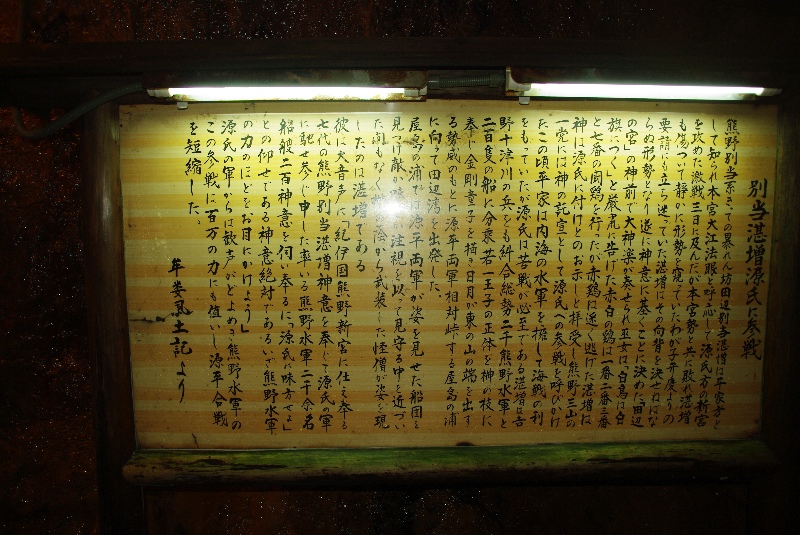 別当湛増源氏に参戦
熊野別当系きっての暴れん坊田辺別当湛増は平家方と
して知られ本宮大江法眼と呼応して源氏方の新宮
を攻めた激戦三日に及んだが本宮勢と共に敗れ湛増
も傷ついて静かに形勢を窺っていたわが子弁慶よりの
要請にも立ち迷っていた湛増はその向背を決せねばな
らぬ形勢となり遂に神意に基くことに決めた田辺
の宮」の神前で大神楽が奏せられ巫女は「白鳥は白
旗につく」と厳粛に告げた赤白の鶏は一番二番三番
と七番の闘鶏を行ったが赤鶏は逃げた湛増は
神は源氏に付けとのお示しと拝受し熊野三山の
一党には神の託宣として源氏への参戦を呼びかけ
たこの頃平家は内海の水軍を擁して海戦の利
をもっていたが源氏は苦戦が必至である湛増は吉
野十津川の兵をも糾合総勢二千熊野水軍と
二百隻の船に分乗若一王子の正体を榊の枝に
奉じ金剛童子を描き日月が東の山の端を出す
る勢威のもとに源平両軍相対峙する屋島の浦
に向て田辺湾を出発した
屋島の浦では源平両軍が姿を見せた船団を
見つけ敵か味方か注視を以って見守る中を近づい
た間もなく 陰から武装した怪僧が姿を現
したのは湛増である
彼は大音声に「紀伊国熊野新宮に仕え奉る
七代の熊野別当湛増神意を奉じて源氏の軍
に馳せ参じ申した率いる熊野水軍二千余名
船艘二百神意を伺い奉るに「源氏に味方せよ」
との仰せである神意絶対であるいざ熊野水軍
の力のほどをお目にかけよう」
源氏の軍からは歓声がどよめき熊野水軍の
この参戦に百万の力にも値いし源平合戦
を短縮した。
牟婁風土記より